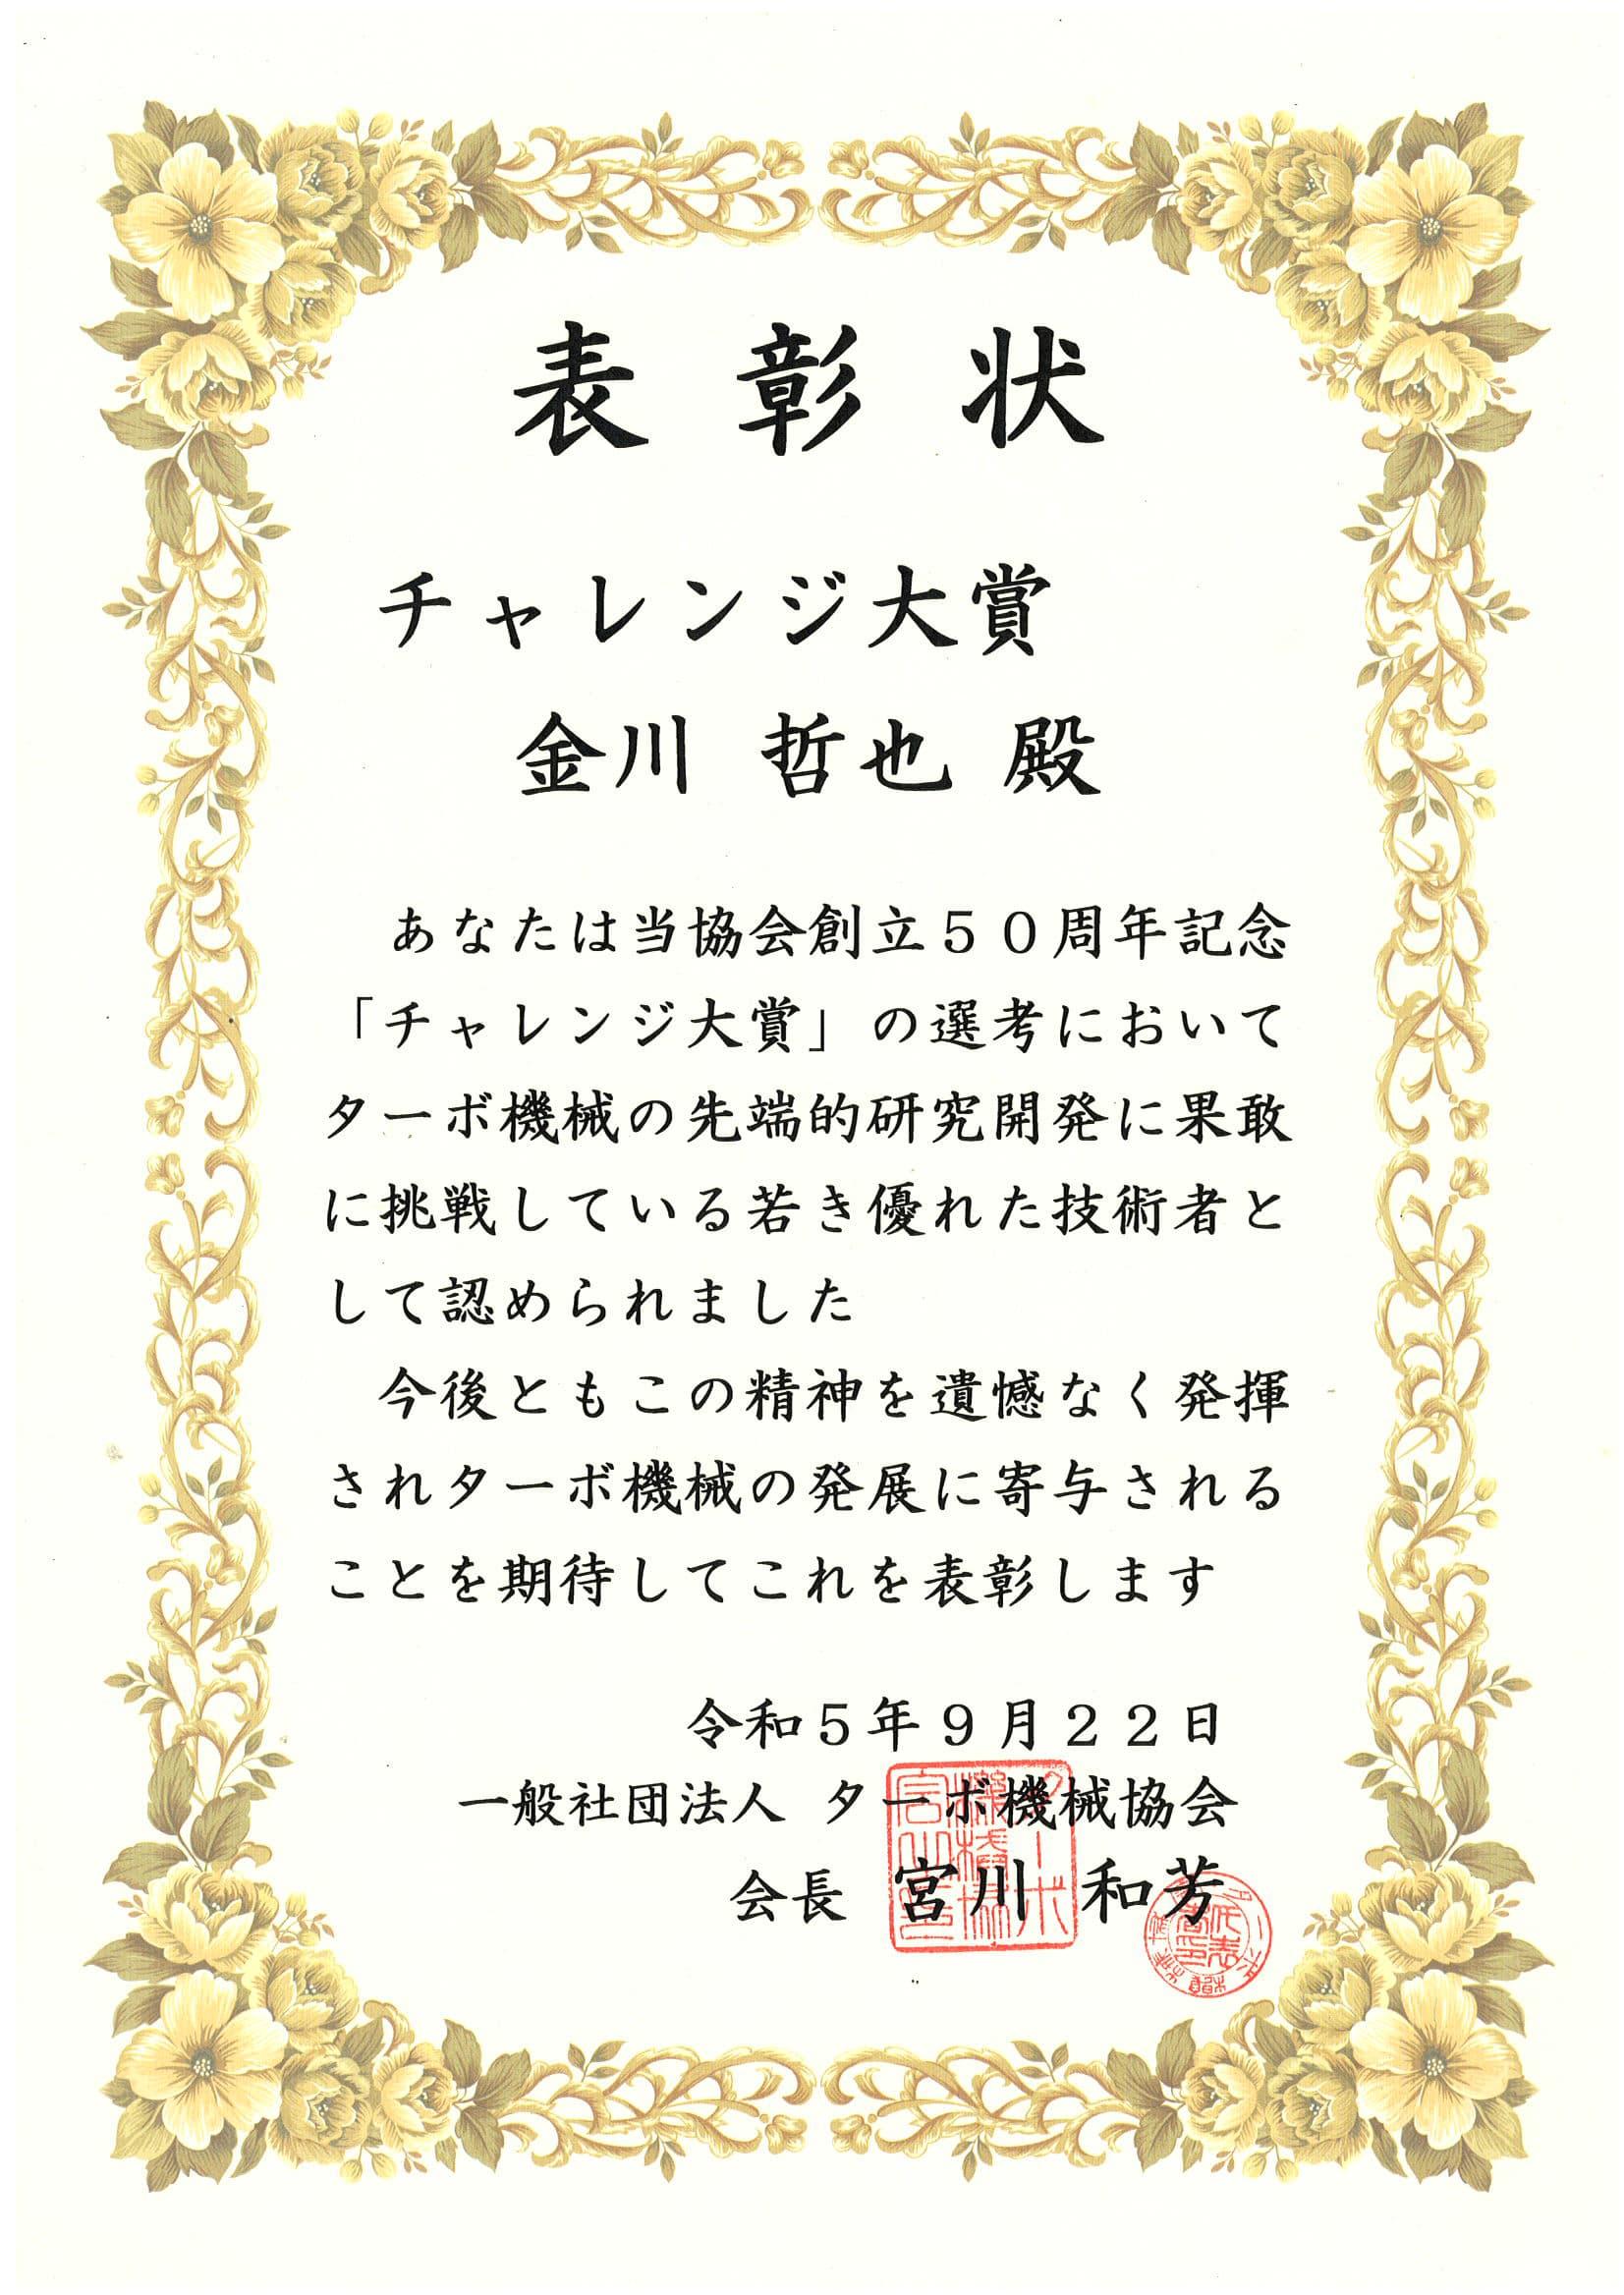 表彰状
チャレンジ大賞
金川 哲也 殿
あなたは当協会創立５０周年記念
「チャレンジ大賞」の選考において
ターボ機械の先端的研究開発に果敢
に挑戦している若き優れた技術者と
して認められました
今後ともこの精神を遺憾なく発揮
されターボ機械の発展に寄与される
ことを期待してこれを表彰します
令和５年９月２２日
一般社団法人 ターボ機械協会
会長 宮川 和芳